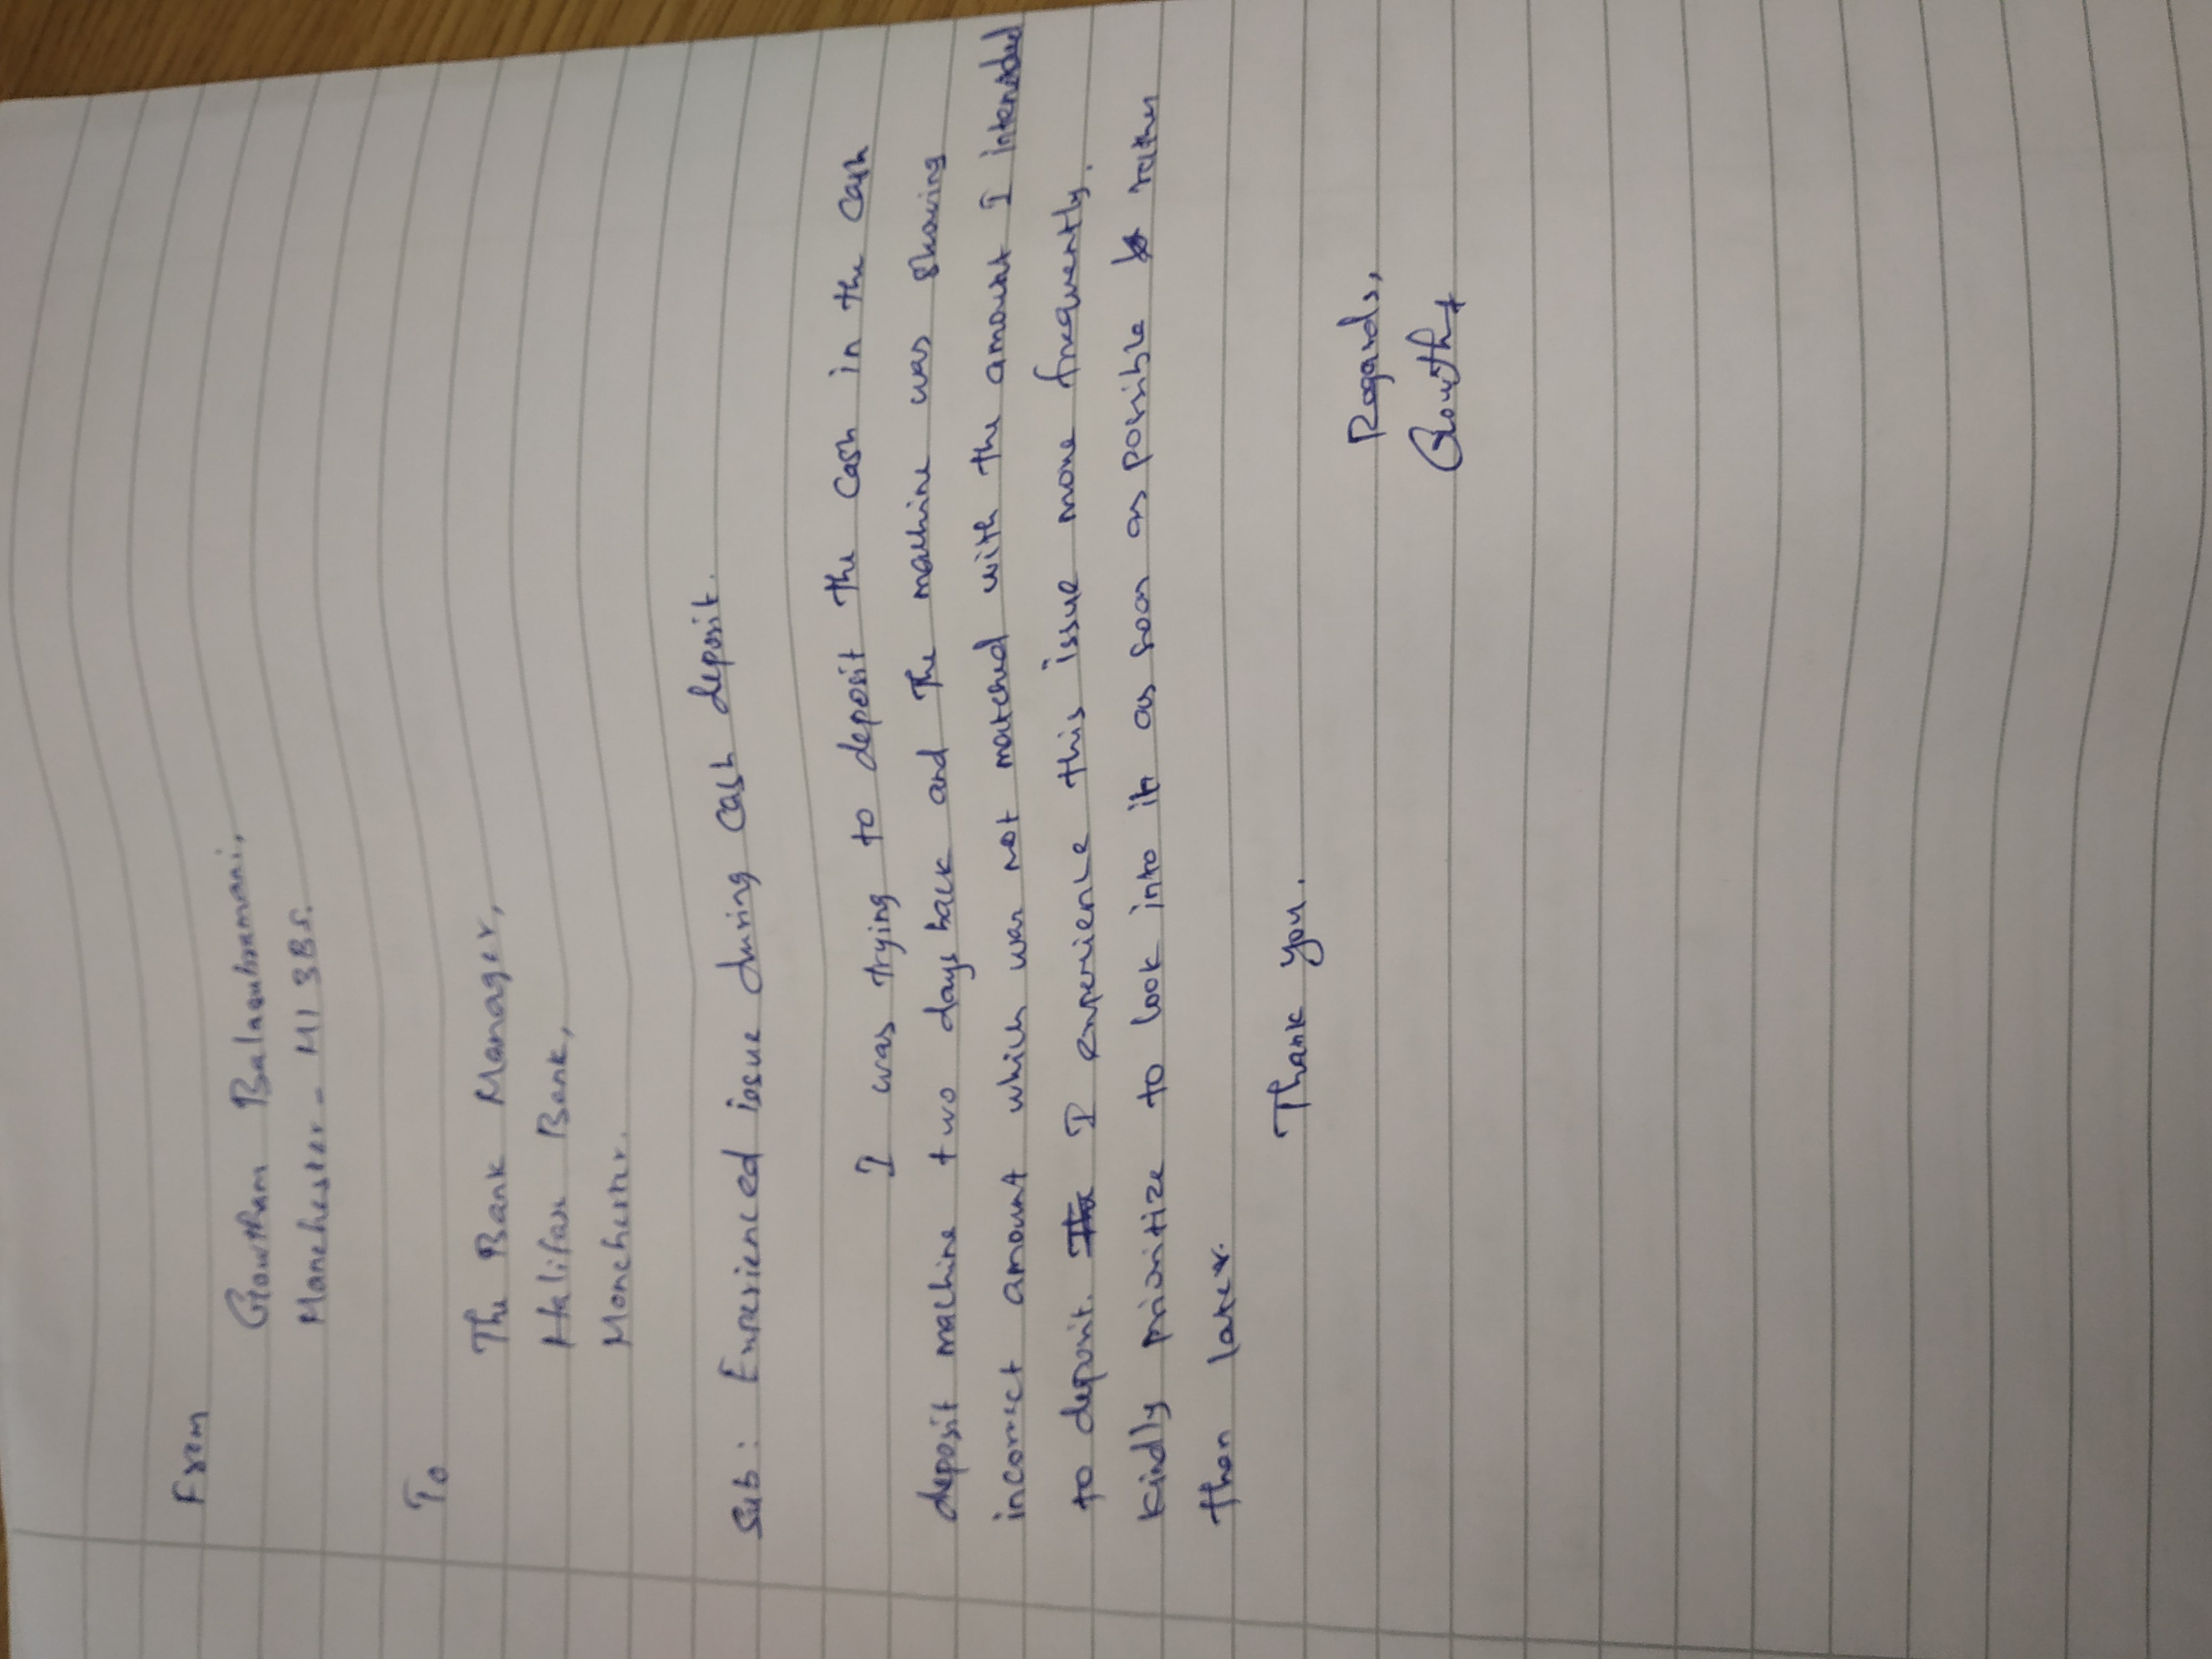 From
Gowtham Balasubramani,
Manchester - M1 3BS.
To
The Bank Manager,
Halifax Bank,
Manchester.
Sub: Experienced issue during cash deposit.
I was trying to deposit the cash in the cash
deposit machine two days back and The machine was showing
incorrect amount which was not matched with the amount I intended
to deposit. I experience this issue more frequently.
Kindly prioritize to look into it as soon as possible rather
than later.
Thank you.
Regards,